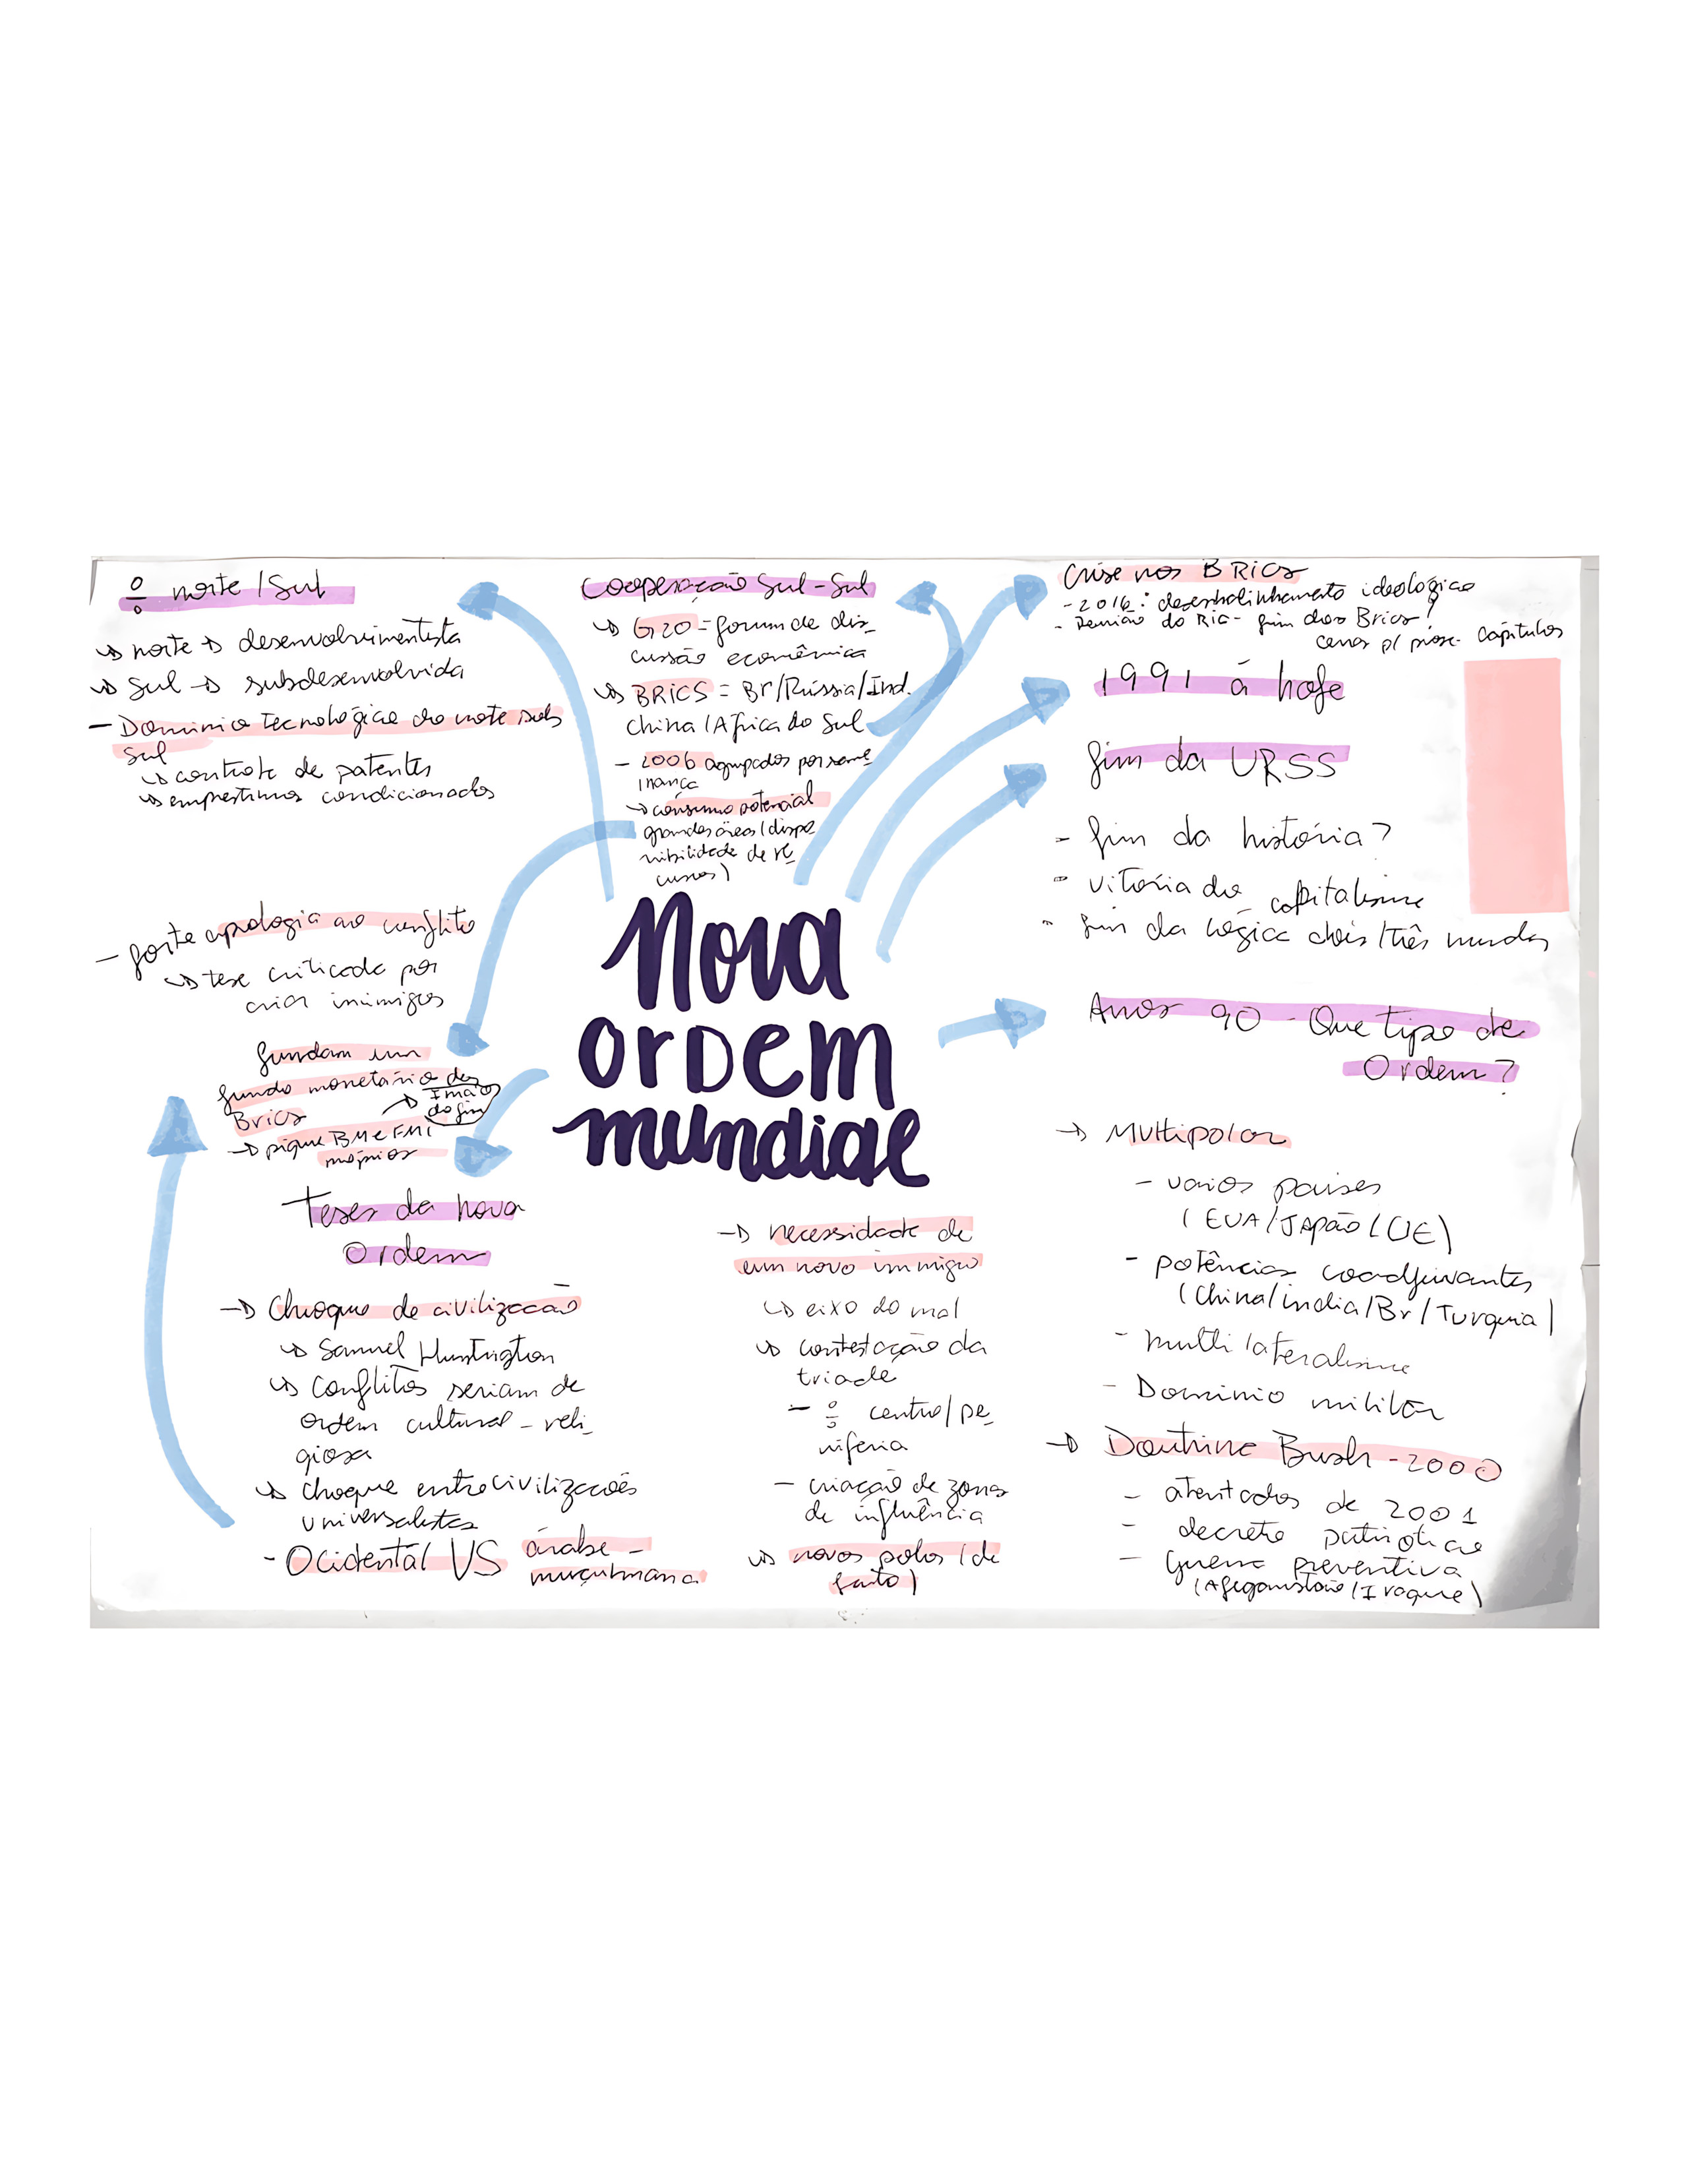 ÷ norte/Sul
↳ norte → desenvolvimentista
↳ Sul → subdesenvolvida
- Domínio tecnológico do norte sob
Sul
↳ controle de patentes
↳ empréstimos condicionados
Cooperação Sul-Sul
↳ G20 = forum de dis-
cussão econômica
↳ BRICS = Br/Rússia/Ind.
China/África do Sul
- 2006 agrupados por seme
lhança
→ consumo potencial
grandes áreas (dispo
nibilidade de re
cursos)
Crise nos BRICs
- 2016: desenhalinhamento ideológico
- Reunião do RIC - fim dos Brics?
cenas p/ próx. capítulos
1991 á hoje
fim da URSS
- fim da história?
- vitória do capitalismo
- fim da lógica dois/três mundos
- forte apologia ao conflito
↳ tese criticada por
criar inimigos
fundam um
fundo monetário dos
Brics
→ pique BM e FMI
próprios
Nova
ordem
mundial
Anos 90 - Que tipo de
Ordem?
→ Multipolar
- vários países
(EUA/Japão/UE)
- potências coadjuvantes
(China/índia/Br/Turquia)
- multilateralismo
- Domínio militar
→ Doutrina Bush - 2000
- atentados de 2001
- decreto patriótico
- guerra preventiva
(Afeganistão/Iraque)
Teses da nova
Ordem
→ Choque de civilização
↳ Samuel Huntington
↳ Conflitos seriam de
ordem cultural - reli
giosa
↳ Choque entre civilizações
universalistas
- Ocidental VS árabe-
muçulmana
→ necessidade de
um novo inimigo
↳ eixo do mal
↳ contestação da
tríade
- ÷ centro/pe
riferia
- criação de zonas
de influência
↳ novos polos (de
fato)